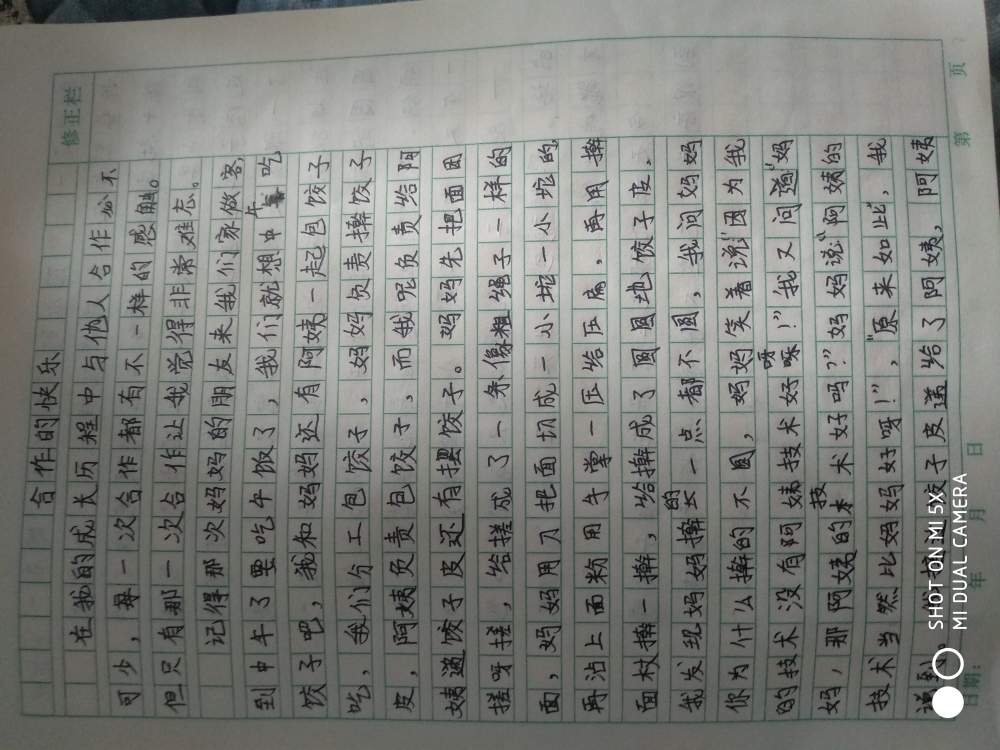 修正栏
合作的快乐
在我的成长历程中与他人合作必不
可少，每一次合作都有不一样的感触。
但只有那一次合作让我觉得非常难忘。
记得那次妈妈的朋友来我们家做客，
到中午了要吃午饭了，我们就想中午吃
饺子吧，我和妈妈还有阿姨一起包饺子
吃，我们分工包饺子，妈妈负责擀饺子
皮，阿姨负责包饺子，而我呢负责给阿
姨递饺子皮还有摆饺子。妈妈先把面团
搓呀搓，给搓成了一条像粗绳子一样的
面，妈妈用刀把面切成一小坨一小坨的，
再沾上面粉用手掌一压给压扁，再用擀
面杖擀一擀，给擀成了圆圆地饺子皮。
我发现妈妈擀的一点都不圆，我问妈妈
你为什么擀的不圆，妈妈笑着说“因为我
的技术没有阿姨技术好呀！”我又问道“妈
妈，那阿姨的技术好吗？”妈妈说“阿姨的
技术当然比妈妈好呀！”，“原来如此”，我
说到，我把饺子皮递给了阿姨，阿姨
日期： 年 月 日 第 页
SHOT ON MI 5X
MI DUAL CAMERA